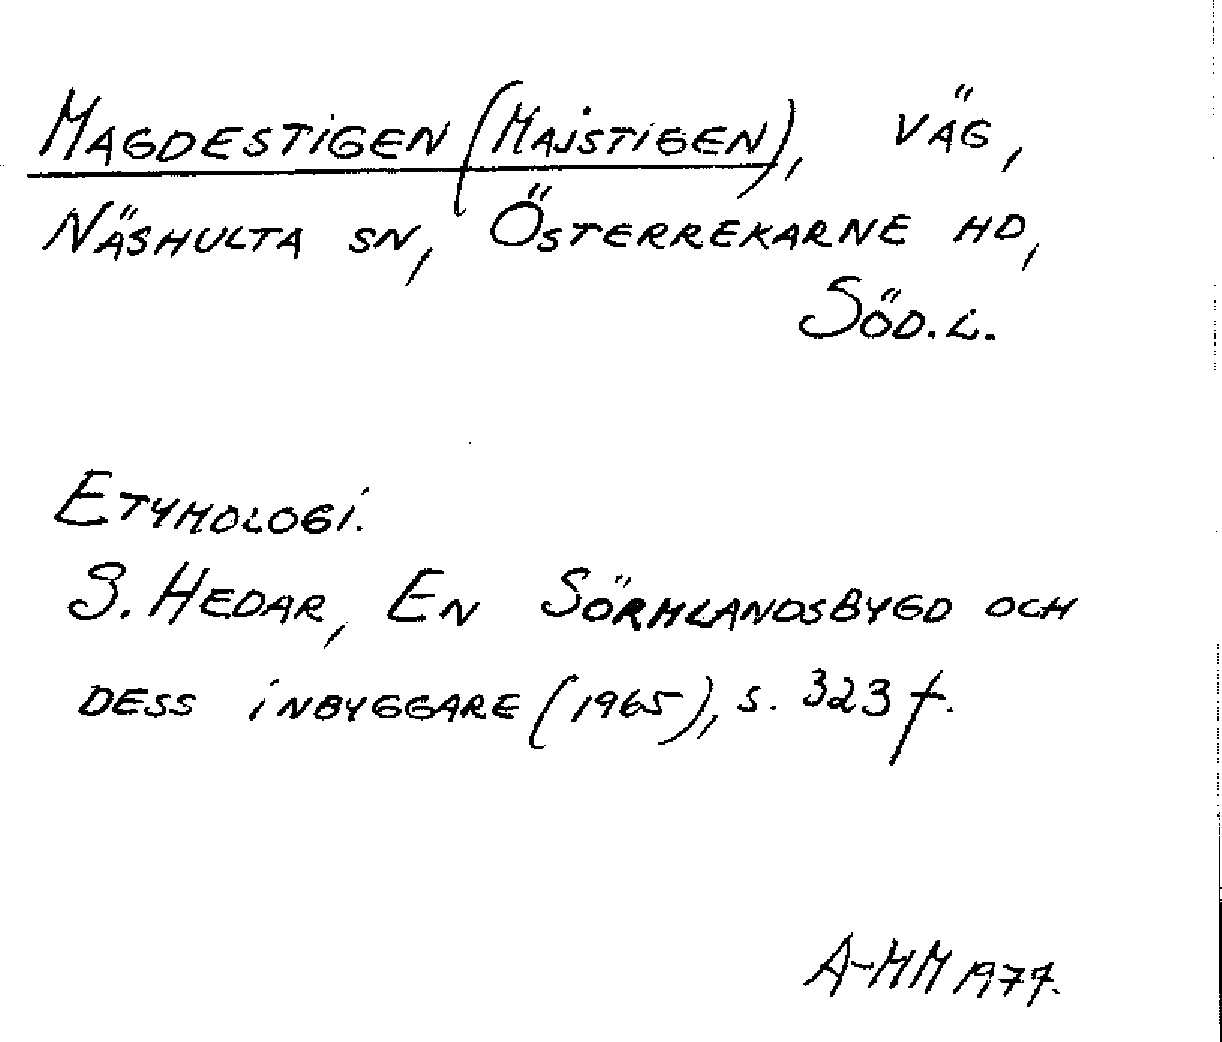 Magdestigen (Majstigen), väg,
Näshulta sn, Österrekarne hd,
Söd.L.
Etymologi.
S. Hedar, En Sörmlandsbygd och
dess inbyggare (1965), s. 323 f.
A-MM 1977.